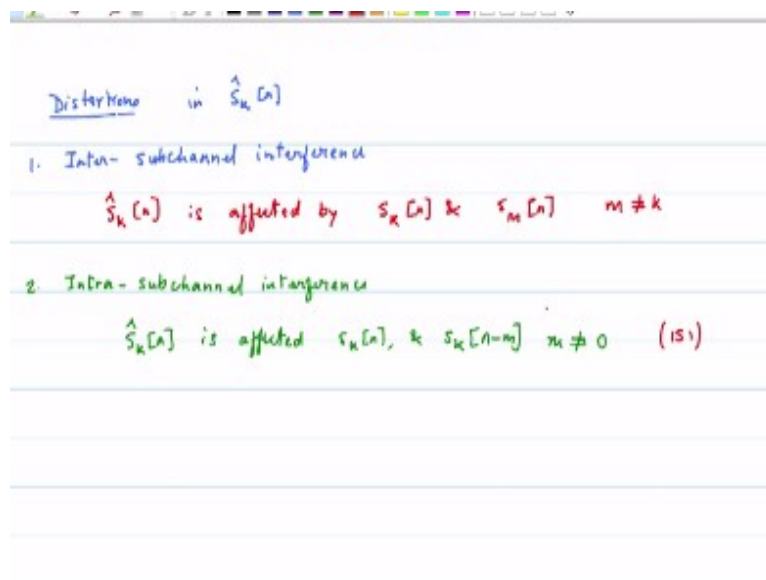 Distortions in ŝₖ[n]
1. Inter-subchannel interference
ŝₖ[n] is affected by sₖ[n] & sₘ[n] m ≠ k
2. Intra-subchannel interference
ŝₖ[n] is affected sₖ[n], & sₖ[n-m] m ≠ 0 (ISI)